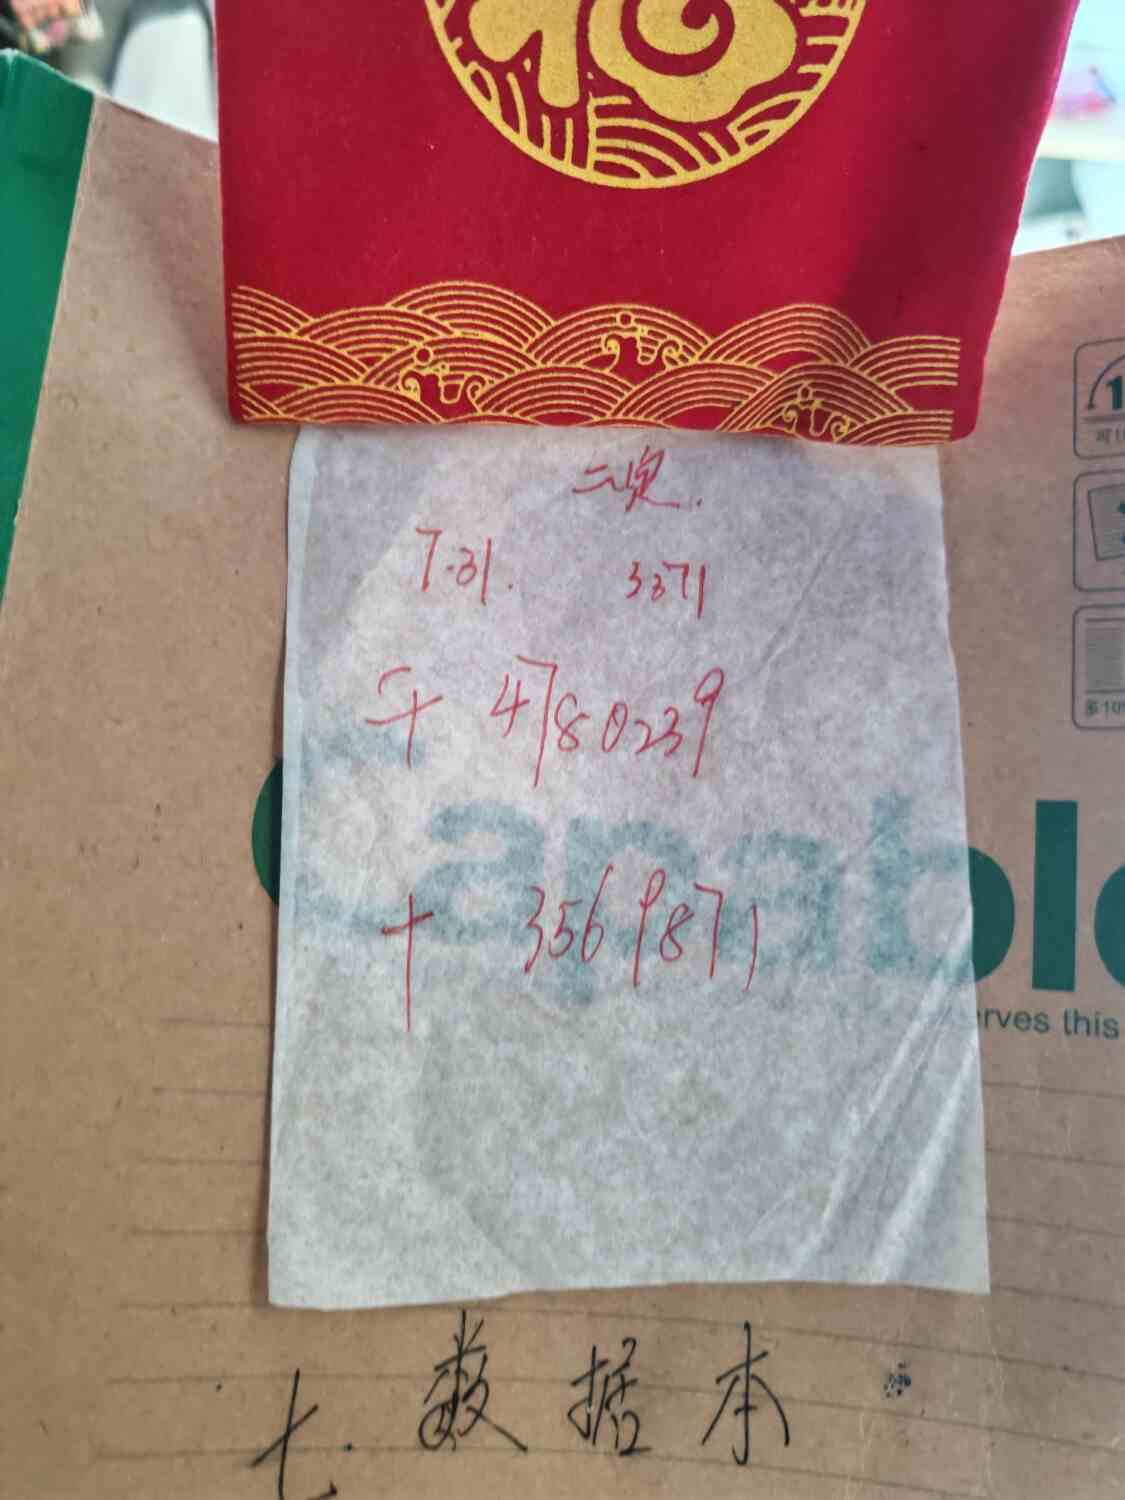 福
7.31. 3371
千 4780239
十 3569871
Capable
erves this
七. 数据本